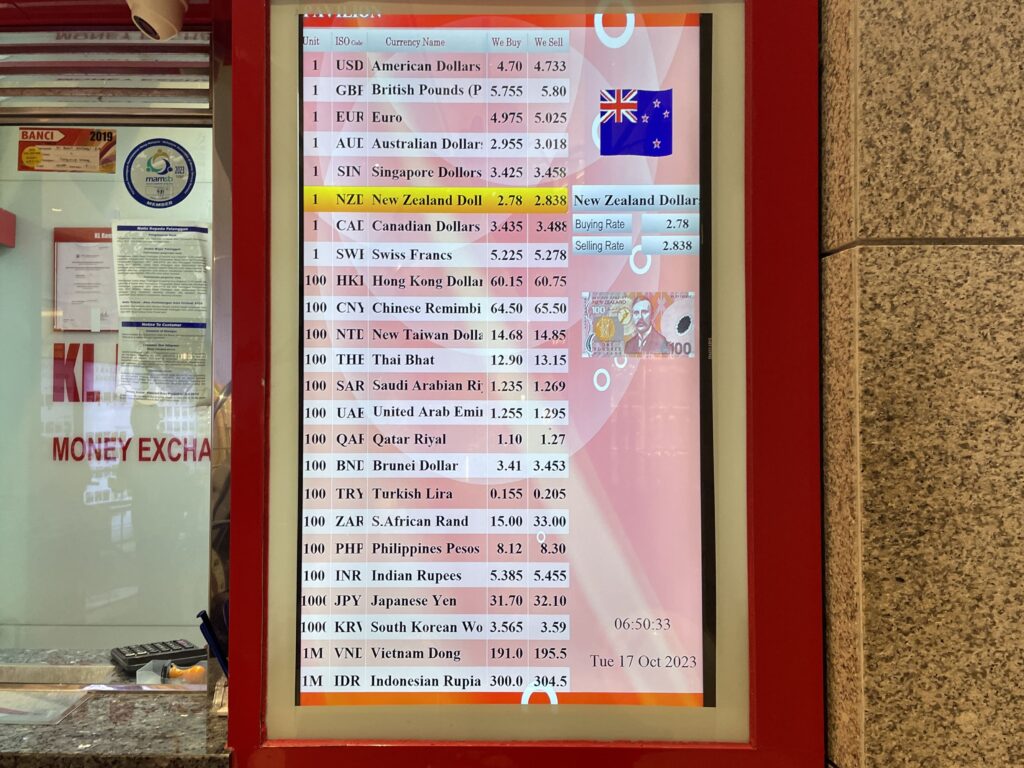 PAVILION
Unit ISO Code Currency Name We Buy We Sell
1 USD American Dollars 4.70 4.733
1 GBP British Pounds (P 5.755 5.80
1 EUR Euro 4.975 5.025
1 AUD Australian Dollars 2.955 3.018
1 SIN Singapore Dollors 3.425 3.458
1 NZD New Zealand Doll 2.78 2.838
1 CAD Canadian Dollars 3.435 3.488
1 SWF Swiss Francs 5.225 5.278
100 HKD Hong Kong Dollar 60.15 60.75
100 CNY Chinese Remimbi 64.50 65.50
100 NTD New Taiwan Dolla 14.68 14.85
100 THB Thai Bhat 12.90 13.15
100 SAR Saudi Arabian Riy 1.235 1.269
100 UAE United Arab Emir 1.255 1.295
100 QAR Qatar Riyal 1.10 1.27
100 BND Brunei Dollar 3.41 3.453
100 TRY Turkish Lira 0.155 0.205
100 ZAR S.African Rand 15.00 33.00
100 PHP Philippines Pesos 8.12 8.30
100 INR Indian Rupees 5.385 5.455
1000 JPY Japanese Yen 31.70 32.10
1000 KRW South Korean Wo 3.565 3.59
1M VND Vietnam Dong 191.0 195.5
1M IDR Indonesian Rupia 300.0 304.5
New Zealand Dollars
Buying Rate 2.78
Selling Rate 2.838
NEW ZEALAND
100
100
06:50:33
Tue 17 Oct 2023
BANCI 2019
mamsb
MEMBER
Notis Kepada Pelanggan
Notice To Customer
KL
MONEY EXCHA